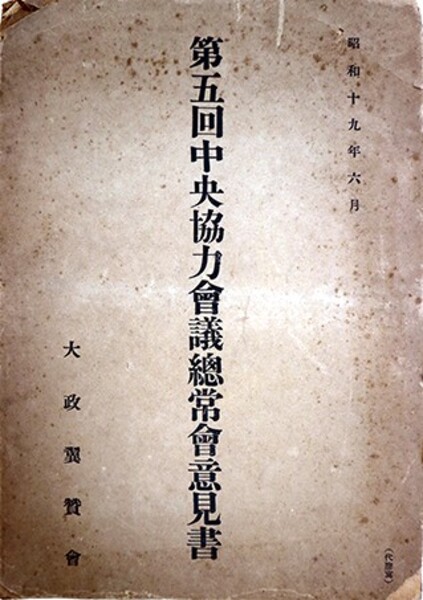 昭和十九年六月
第五回中央協力會議總常會意見書
大政翼贊會
(代謄寫)